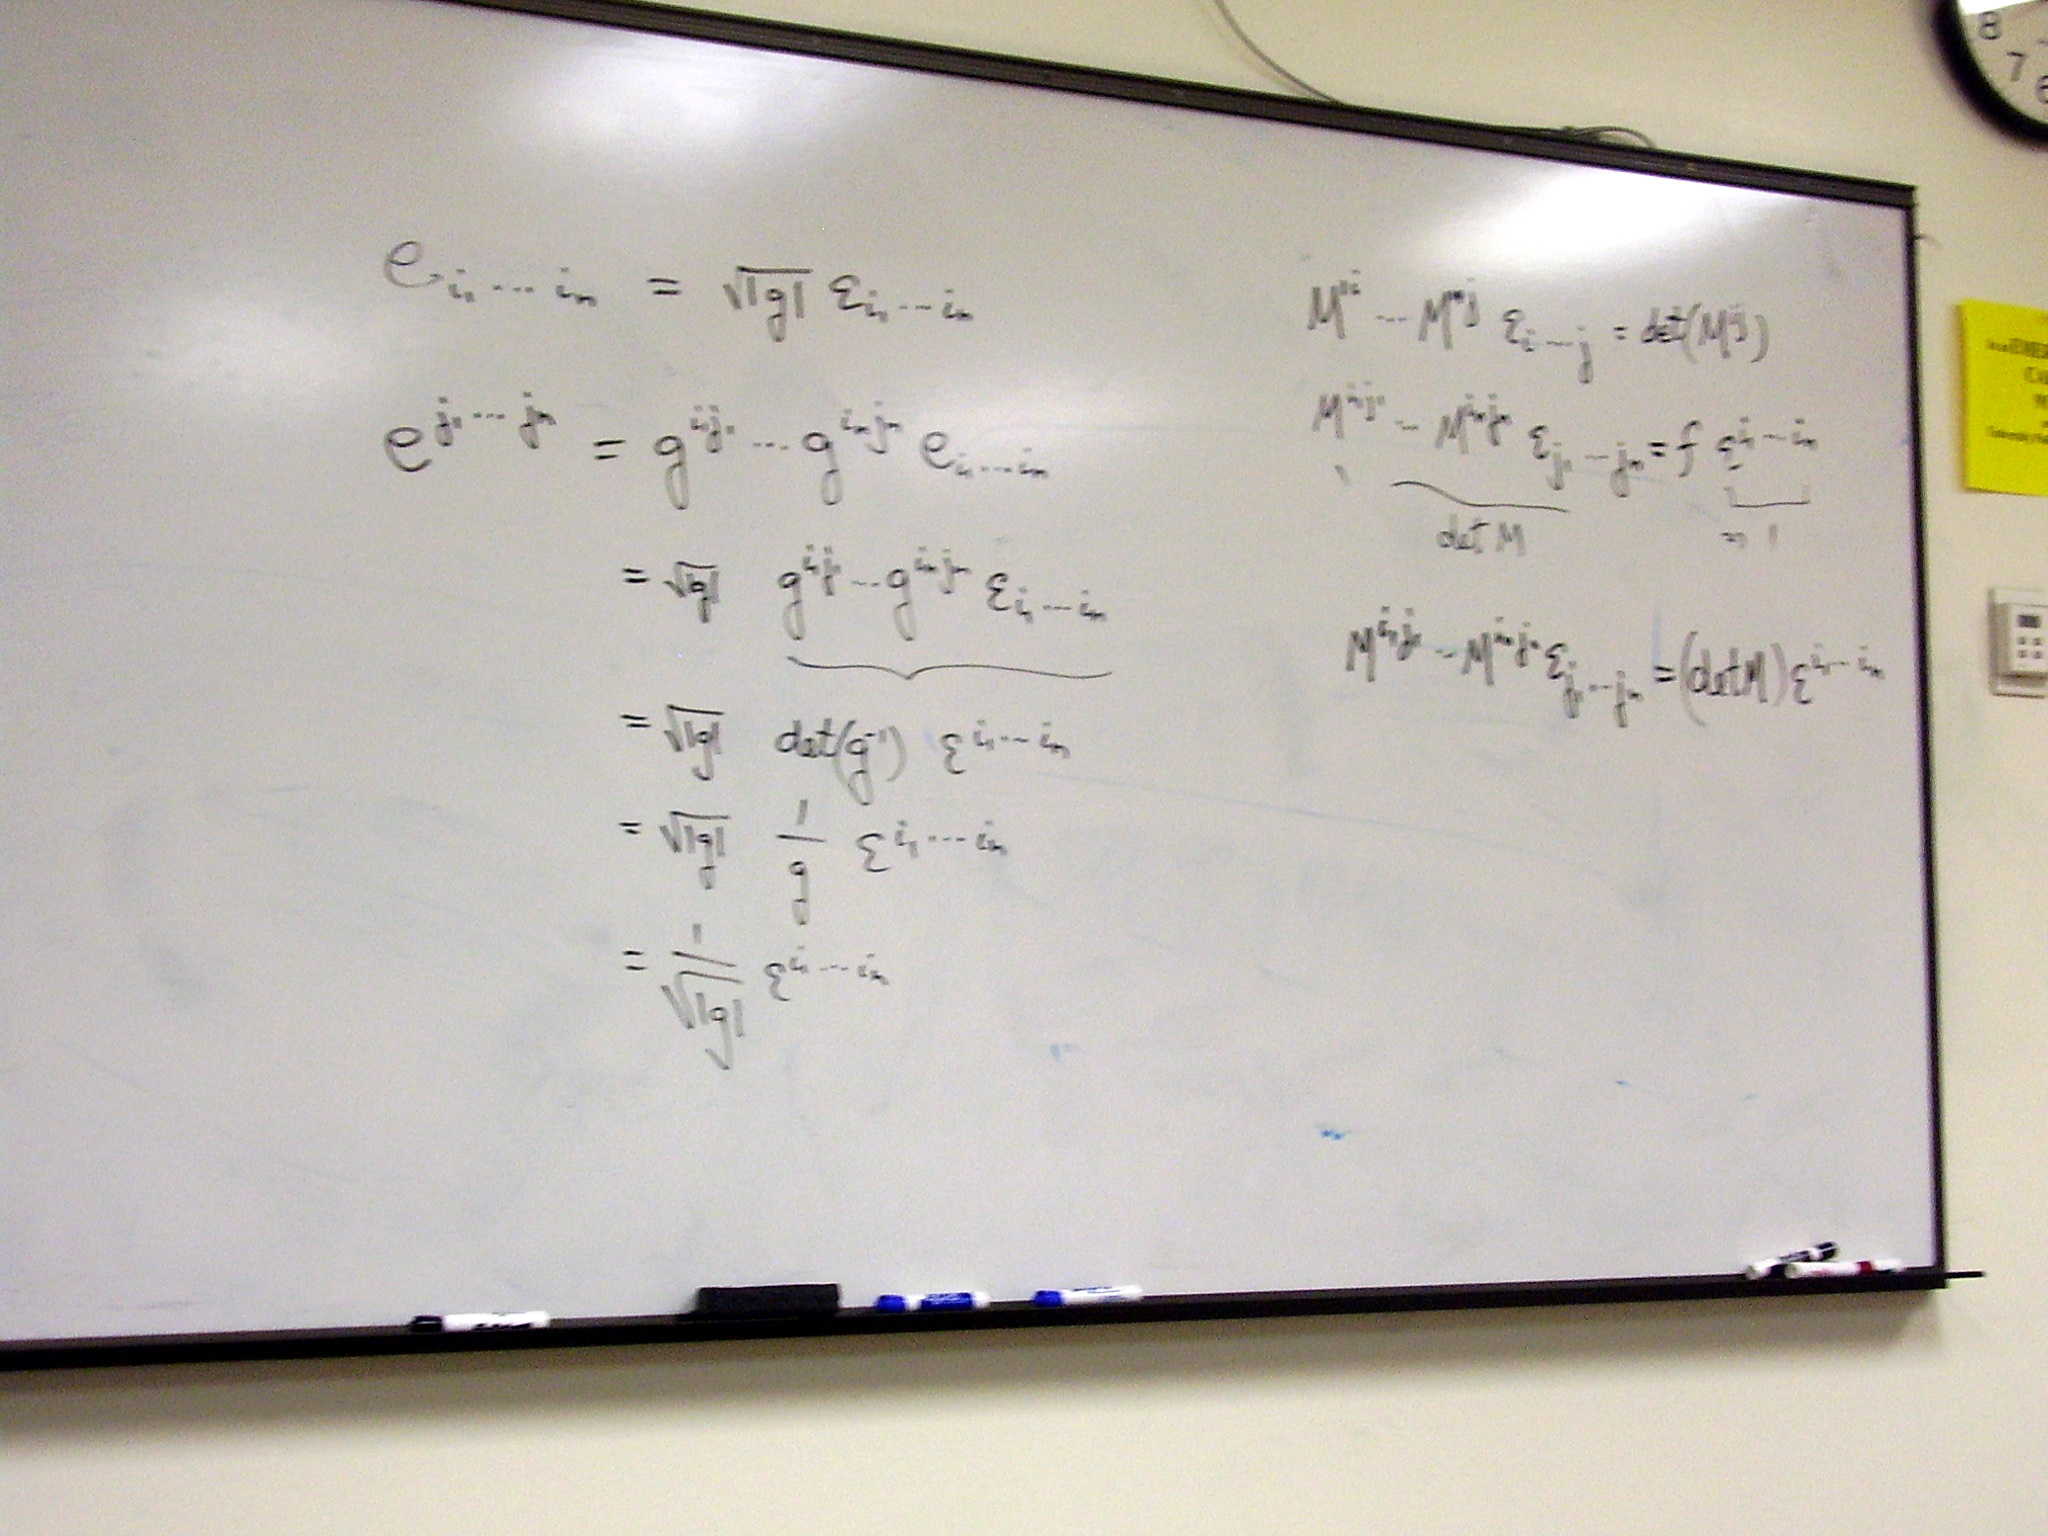 e_{i_1 ... i_n} = √|g| ε_{i_1 ... i_n}
e^{j_1 ... j_n} = g^{i_1 j_1} ... g^{i_n j_n} e_{i_1 ... i_n}
= √|g| g^{i_1 j_1} ... g^{i_n j_n} ε_{i_1 ... i_n}
= √|g| det(g^{-1}) ε^{i_1 ... i_n}
= √|g| 1/g ε^{i_1 ... i_n}
= 1/√|g| ε^{i_1 ... i_n}
M^{1i} ... M^{nj} ε_{i ... j} = det(M^{ij})
M^{i_1 j_1} ... M^{i_n j_n} ε_{j_1 ... j_n} = f ε^{i_1 ... i_n}
det M
= 1
M^{i_1 j_1} ... M^{i_n j_n} ε_{j_1 ... j_n} = (det M) ε^{i_1 ... i_n}
8
7
6